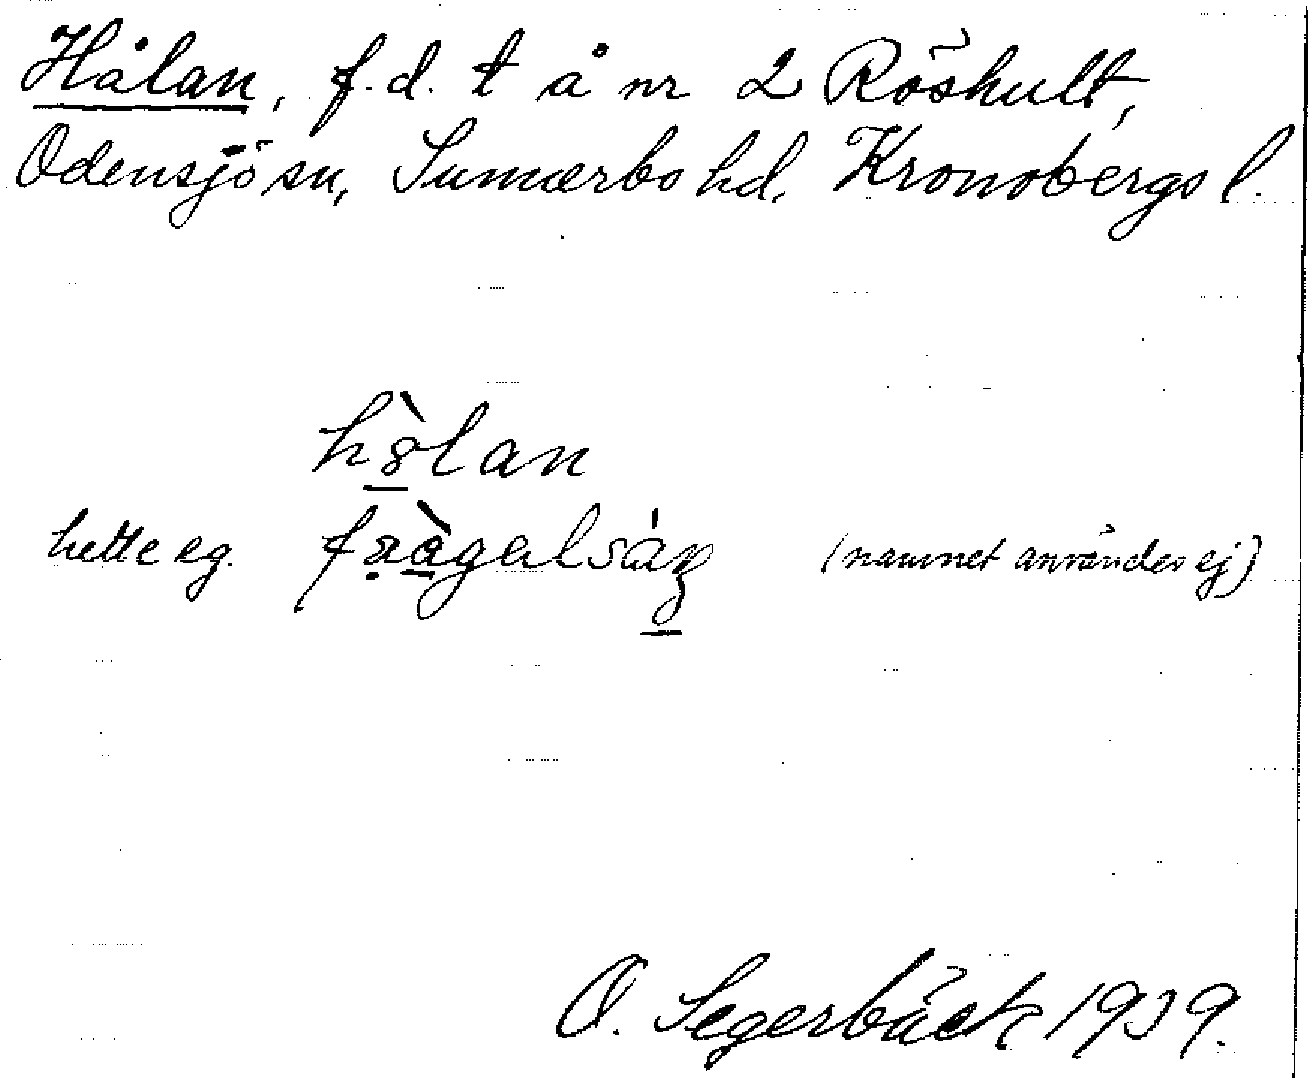 Hålan, f.d. t å nr 2 Röshult,
Odensjö sn, Sunnerbo hd, Kronobergs l.
hòlan
hette eg. (namnet användes ej)
O. Segerbäck 1939.